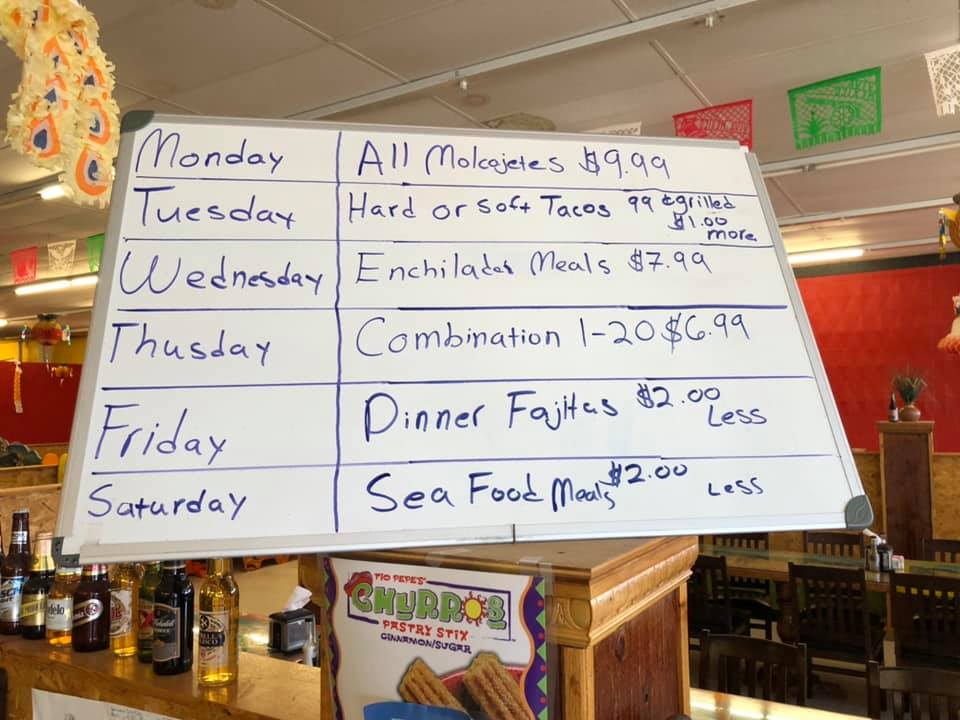 Monday All Molcajetes $9.99
Tuesday Hard or Soft Tacos 99 ¢ grilled
$1.00
more
Wednesday Enchiladas Meals $7.99
Thusday Combination 1-20 $6.99
Friday Dinner Fajitas $2.00
Less
Saturday Sea Food Meals $2.00 Less
TIO PEPE'S
CHURROS
PASTRY STIX
CINNAMON/SUGAR